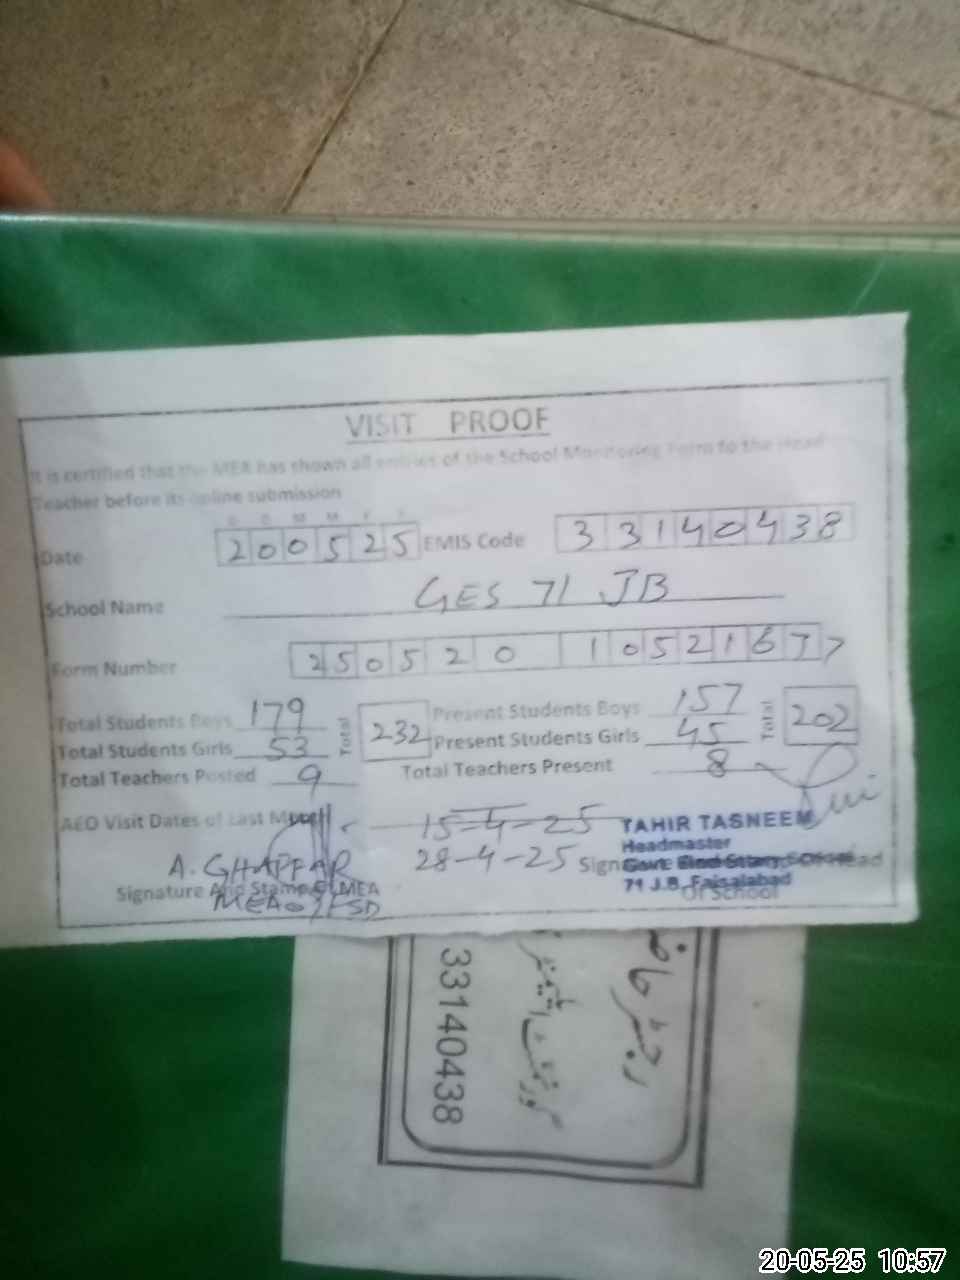 VISIT PROOF
It is certified that the MEA has shown all entries of the School Monitoring Form to the Head
Teacher before its online submission
D D M M Y Y
Date 200525 EMIS Code 33140438
School Name GES 71 JB
Form Number 250520 10521677
Total Students Boys 179 Total 232 Present Students Boys 157 Total 202
Total Students Girls 53 Present Students Girls 45
Total Teachers Posted 9 Total Teachers Present 8
AEO Visit Dates of Last Month 15-4-25
28-4-25
A. GHAFFAR
Signature And Stamp of MEA
MEA FSD
TAHIR TASNEEM
Headmaster
Signature Head
71 J.B. Faisalabad
Of School
رجسٹر حاضری
گورنمنٹ
33140438
20-05-25 10:57